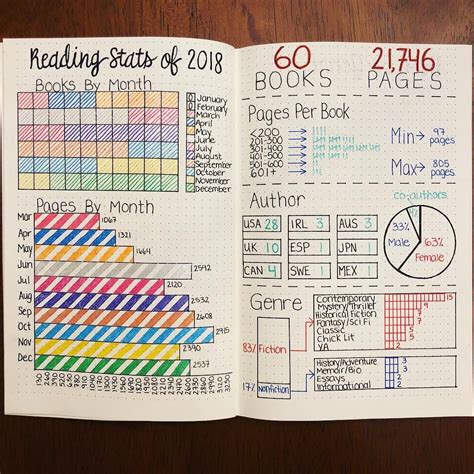 Reading Stats of 2018
Books By Month
January
February
March
April
May
June
July
August
September
October
November
December
Pages By Month
Mar 1067
Apr 1321
May 1664
Jun 2592
Jul 2120
Aug 2532
Sep 2608
Oct 2915
Nov 2390
Dec 2537
60 21,746
BOOKS PAGES
Pages Per Book
<200
201-300
301-400
401-500
501-600
601+
Min → 97 pages
Max → 805 pages
Author
USA 28 IRL 3 AUS 3
UK 10 ESP 1 JPN 1
CAN 4 SWE 1 MEX 1
co-authors
33% Male
63% Female
Genre
83% Fiction
17% Nonfiction
Contemporary 15
Mystery/Thriller
Historical Fiction
Fantasy/Sci Fi
Classic
Chick Lit
YA
History/Adventure
Memoir/Bio
Essays
Informational